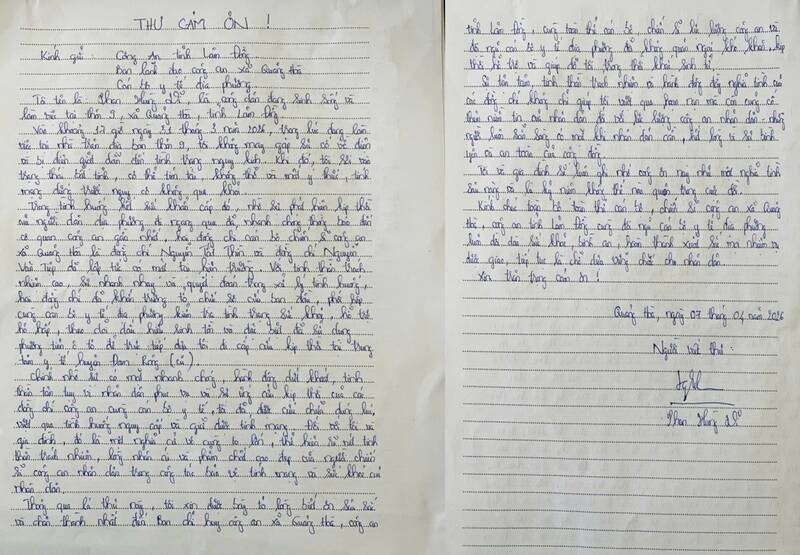 THƯ CẢM ƠN !
Kính gửi : Công An tỉnh Lâm Đồng
Ban lãnh đạo công an xã Quảng Hoà
Cán bộ y tế địa phương
Tôi tên là : Phan Hùng Sỉ, là công dân đang sinh sống và
làm việc tại thôn 9, xã Quảng Hoà, tỉnh Lâm Đồng.
Vào khoảng 17 giờ ngày 31 tháng 3 năm 2026, trong lúc đang làm
việc tại nhà trên địa bàn thôn 9, tôi không may gặp sự cố về điện
và bị điện giật dẫn đến tình trạng nguy kịch. Khi đó, tôi rơi vào
trạng thái bất tỉnh, cơ thể tím tái, không thở và mất ý thức, tính
mạng đứng trước nguy cơ không qua khỏi.
Trong tình huống hết sức khẩn cấp đó, nhờ sự phát hiện kịp thời
của người dân địa phương đi ngang qua đã nhanh chóng thông báo đến
cơ quan công an gần nhất, hai đồng chí cán bộ chiến sĩ công an
xã Quảng Hoà là đồng chí Nguyễn Tất Thìn và đồng chí Nguyễn
Văn Tiếp đã lập tức có mặt tại hiện trường. Với tinh thần trách
nhiệm cao, sự nhanh nhạy và quyết đoán trong xử lý tình huống,
hai đồng chí đã khẩn trương sơ cứu ban đầu, phối hợp
cùng cán bộ y tế địa phương kiểm tra tình trạng sức khoẻ, hỗ trợ
hô hấp, theo dõi dấu hiệu sinh tồn và đặc biệt đã sử dụng
phương tiện ô tô để trực tiếp đưa tôi đi cấp cứu kịp thời tại trung
tâm y tế huyện Đam Rông (cũ).
Chính nhờ sự có mặt nhanh chóng, hành động dứt khoát, tinh
thần tận tuỵ vì nhân dân, phục vụ và sự ứng cứu kịp thời của các
đồng chí công an cùng cán bộ y tế, tôi đã được cứu chữa đúng lúc,
vượt qua tình huống nguy cấp và giữ được tính mạng. Đối với tôi và
gia đình, đó là một nghĩa cử vô cùng to lớn, thể hiện rõ nét tinh
thần trách nhiệm, lòng nhân ái và phẩm chất cao đẹp của người chiến
sĩ công an nhân dân trong công tác bảo vệ tính mạng và sức khoẻ của
nhân dân.
Thông qua lá thư này, tôi xin được bày tỏ lòng biết ơn sâu sắc
và chân thành nhất đến Ban chỉ huy công an xã Quảng Hoà, công an
tỉnh Lâm Đồng, cùng toàn thể cán bộ chiến sĩ lực lượng công an và
đội ngũ cán bộ y tế địa phương đã không quản ngại khó khăn, kịp
thời hỗ trợ và giúp đỡ tôi trong thời khắc sinh tử.
Sự tận tâm, tinh thần trách nhiệm và hành động đầy nghĩa tình của
các đồng chí không chỉ giúp tôi vượt qua hoạn nạn mà còn củng cố
thêm niềm tin của nhân dân đối với lực lượng công an nhân dân - những
người luôn sẵn sàng có mặt khi nhân dân cần, hết lòng vì sự bình
yên và an toàn của cộng đồng.
Tôi và gia đình sẽ luôn ghi nhớ công ơn này như một nghĩa tình
sâu nặng và là kỷ niệm không thể nào quên trong cuộc đời.
Kính chúc toàn thể cán bộ, chiến sĩ công an xã Quảng
Hoà, công an tỉnh Lâm Đồng cùng đội ngũ cán bộ y tế địa phương
luôn dồi dào sức khoẻ, bình an, hoàn thành xuất sắc mọi nhiệm vụ
được giao, tiếp tục là chỗ dựa vững chắc cho nhân dân.
Xin trân trọng cảm ơn !
Quảng Hoà, ngày 07 tháng 04 năm 2026
Người viết thư :
Phan Hùng Sỉ